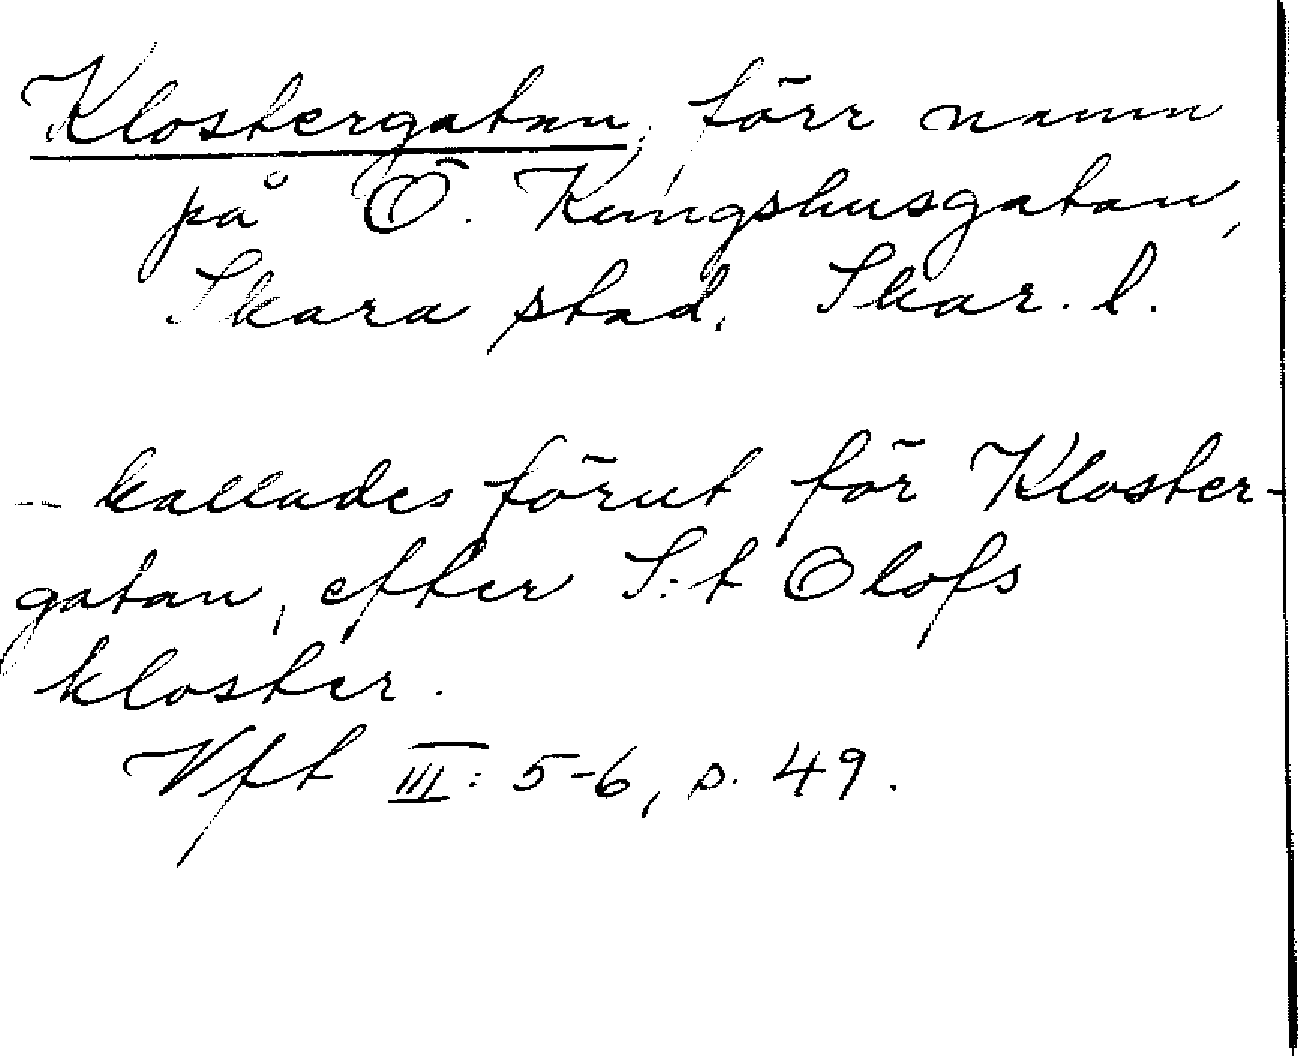 Klostergatan, förr namn
på Ö. Kungshusgatan,
Skara stad. Skar. l.
- kallades förut för Kloster-
gatan, efter S:t Olofs
kloster.
Vft III: 5-6, s. 49.